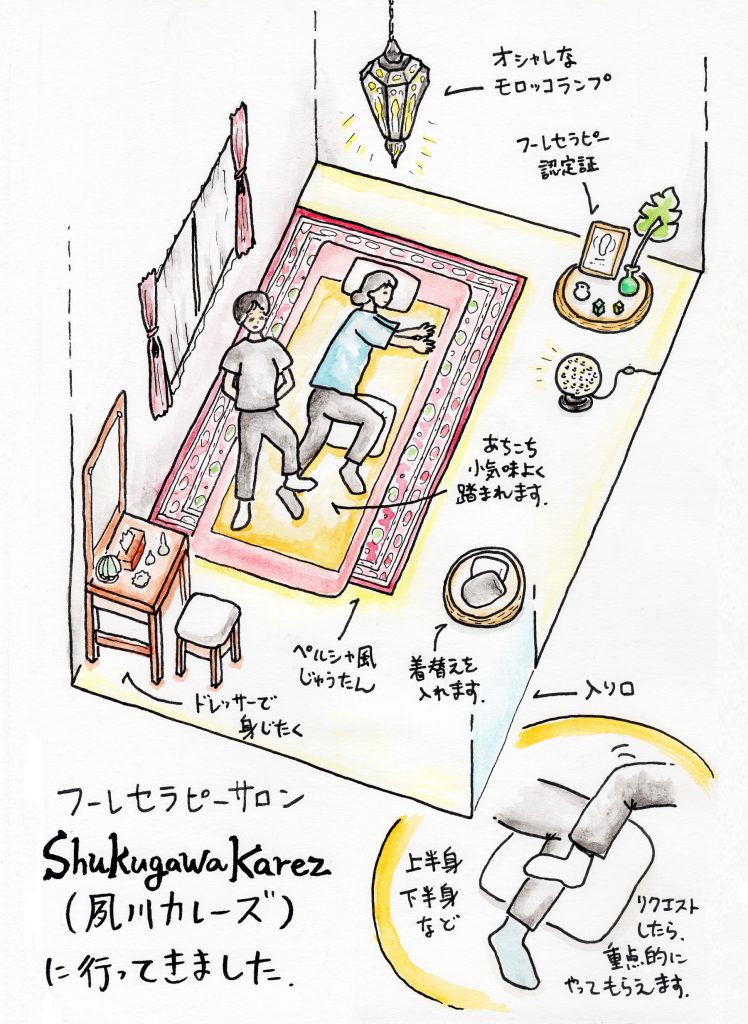 オシャレな
モロッコランプ
フーレセラピー
認定証
あちこち
小気味よく
踏まれます.
ペルシャ風
じゅうたん
着替えを
入れます.
入り口
ドレッサーで
身じたく
フーレセラピーサロン
Shukugawa Karez
(夙川カレーズ)
に行ってきました.
上半身
下半身
など
リクエスト
したら、
重点的に
やってもらえます.